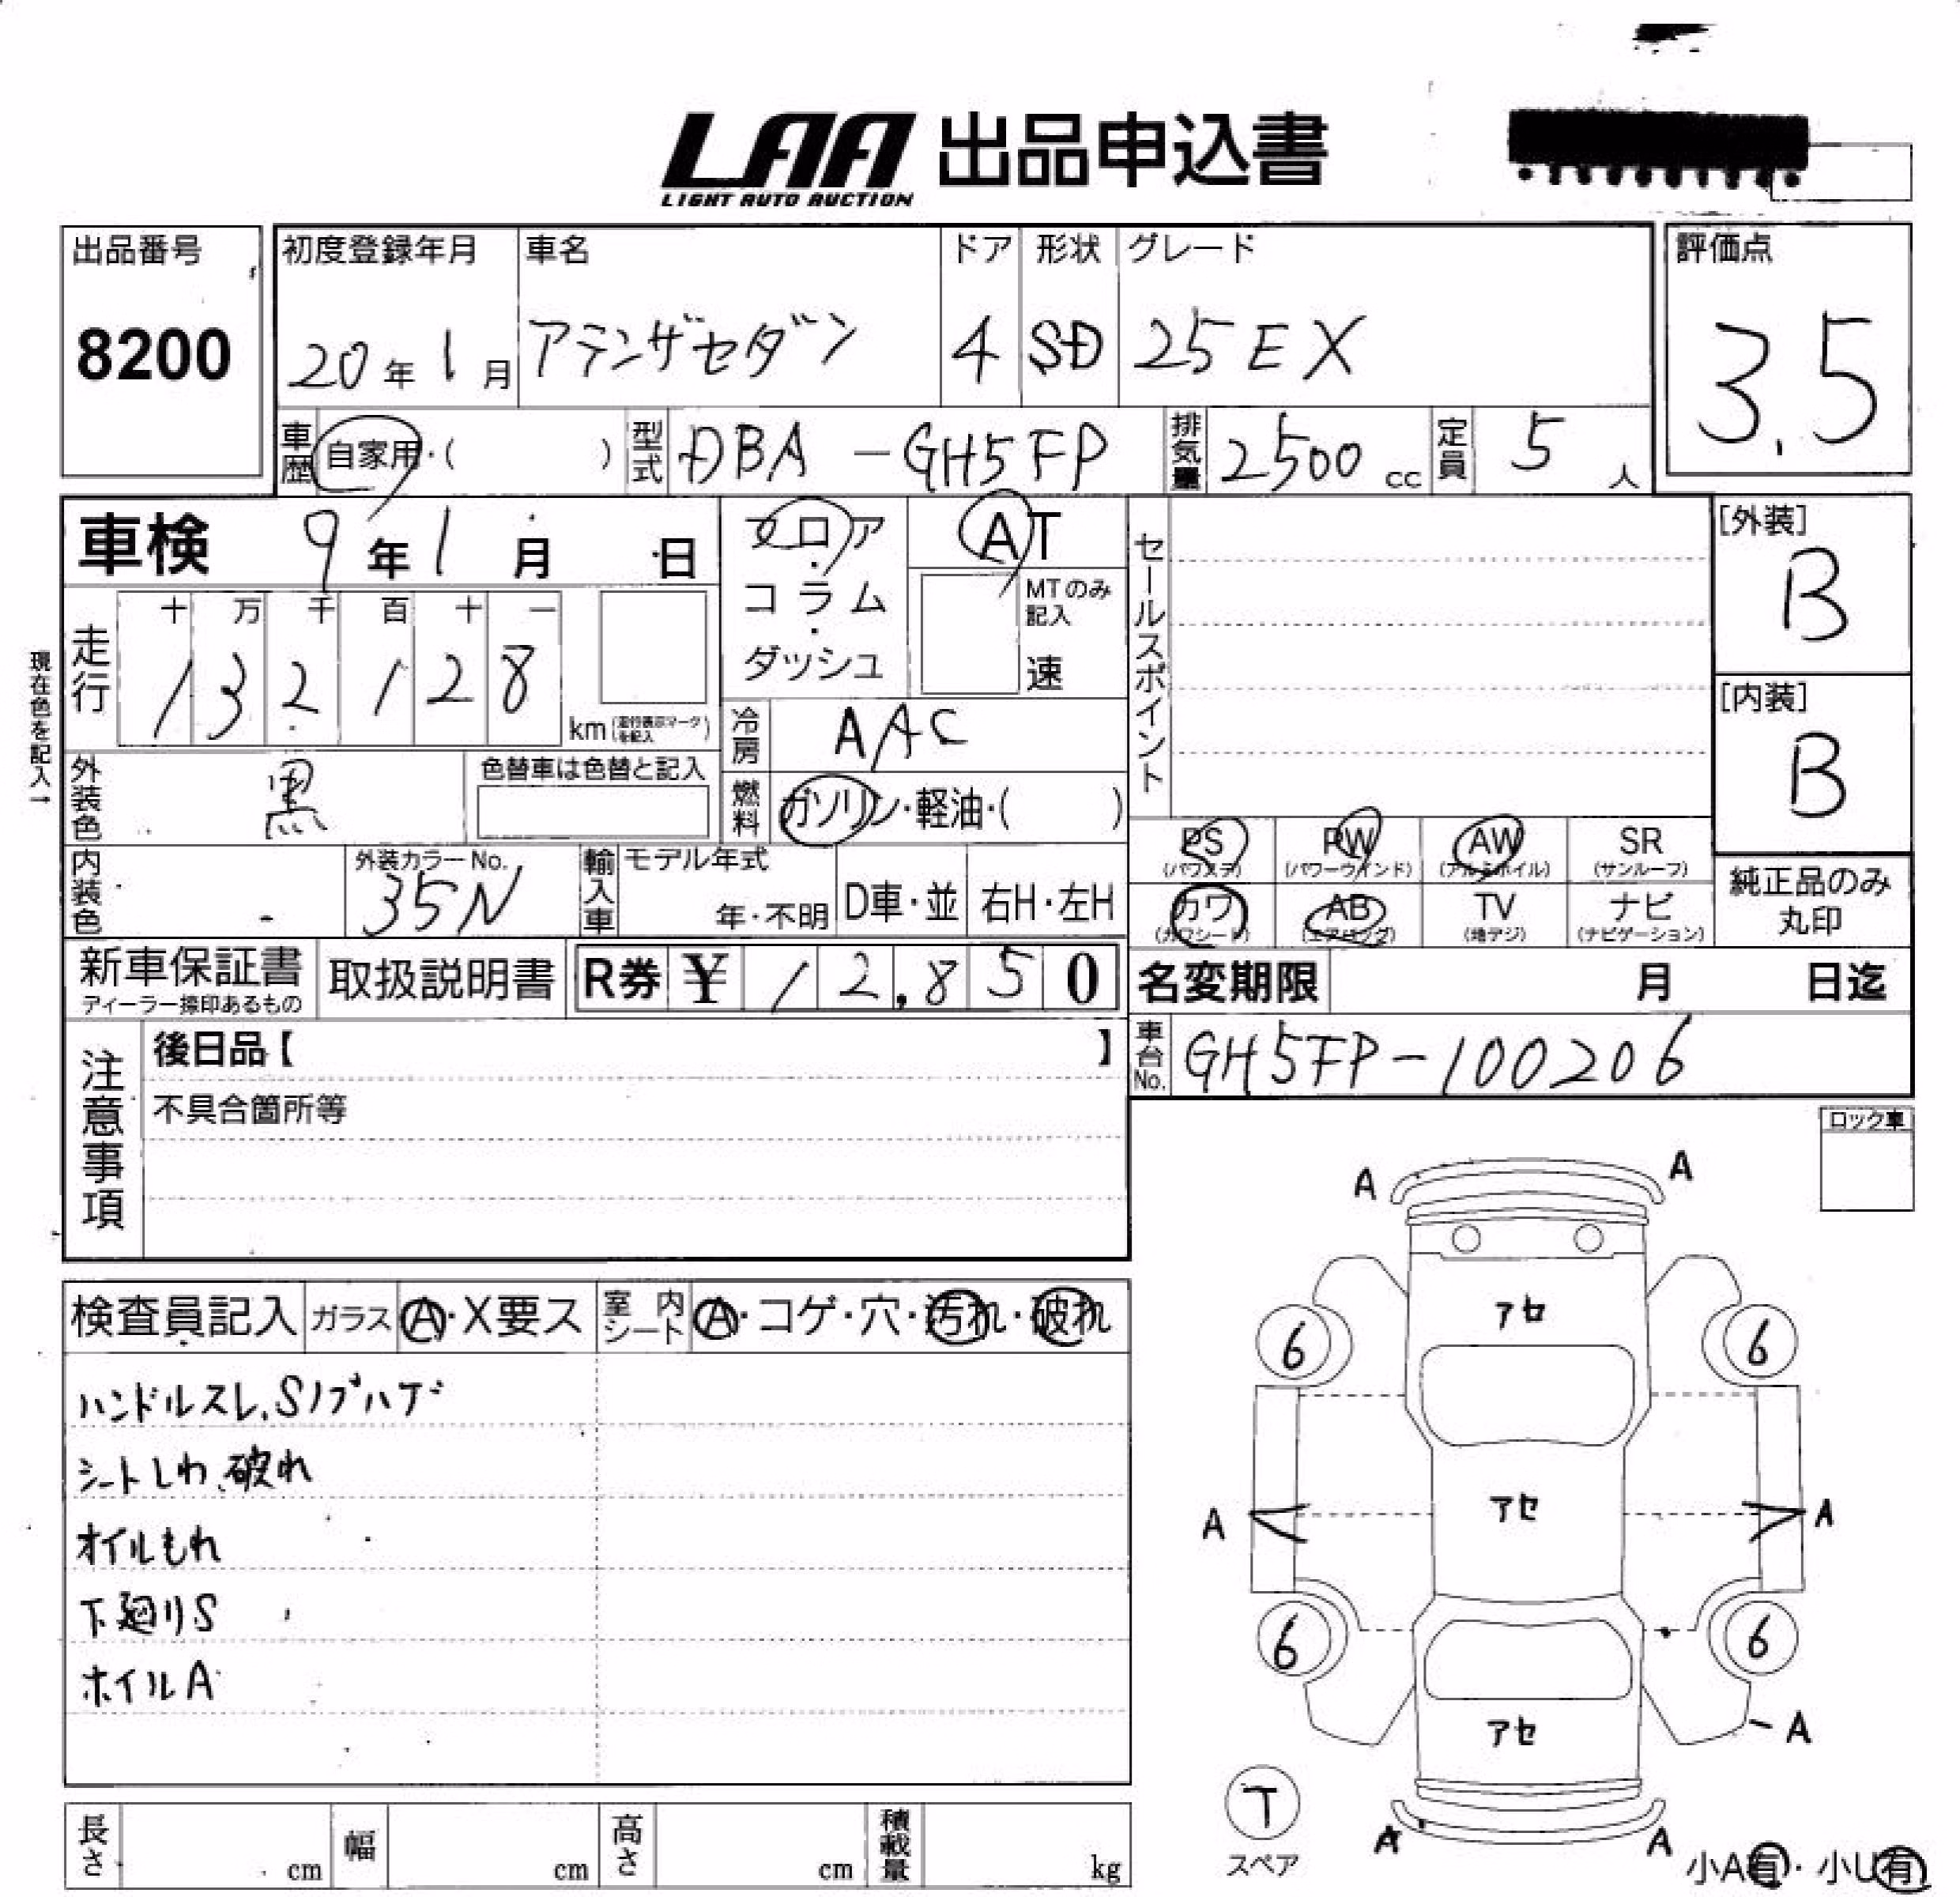 LAA 出品申込書
LIGHT AUTO AUCTION
出品番号
8200
初度登録年月
20年1月
車名
アテンザセダン
ドア
4
形状
SD
グレード
25EX
評価点
3.5
車歴
自家用・( )
型式
DBA-GH5FP
排気量
2500 cc
定員
5 人
車検 9年1月 日
フロア・コラム・ダッシュ
AT
MTのみ記入
速
セールスポイント
[外装]
B
[内装]
B
現在色を記入→
走行
十 万 千 百 十 一
1 3 2 1 2 8
km(走行表示マークを記入)
冷房
AAC
外装色
黒
色替車は色替と記入
燃料
ガソリン・軽油・( )
内装色
外装カラーNo.
35N
輸入車
モデル年式
年・不明
D車・並
右H・左H
PS
(パワステ)
PW
(パワーウインド)
AW
(アルミホイル)
SR
(サンルーフ)
カワ
(カワシート)
AB
(エアバッグ)
TV
(地デジ)
ナビ
(ナビゲーション)
純正品のみ
丸印
新車保証書
ディーラー捺印あるもの
取扱説明書
R券 ¥ 12,850
名変期限 月 日迄
車台No.
GH5FP-100206
注意事項
後日品【 】
不具合箇所等
ロック車
検査員記入
ガラス
A・X要ス
室内シート
A・コゲ・穴・汚れ・破れ
ハンドルスレ、Sノブハゲ
シートしわ、破れ
オイルもれ
下廻りS
ホイルA
A A
アセ
6 6
アセ
A A
6 6
アセ
A
T
スペア
A A
小A有・小U有
長さ cm
幅 cm
高さ cm
積載量 kg